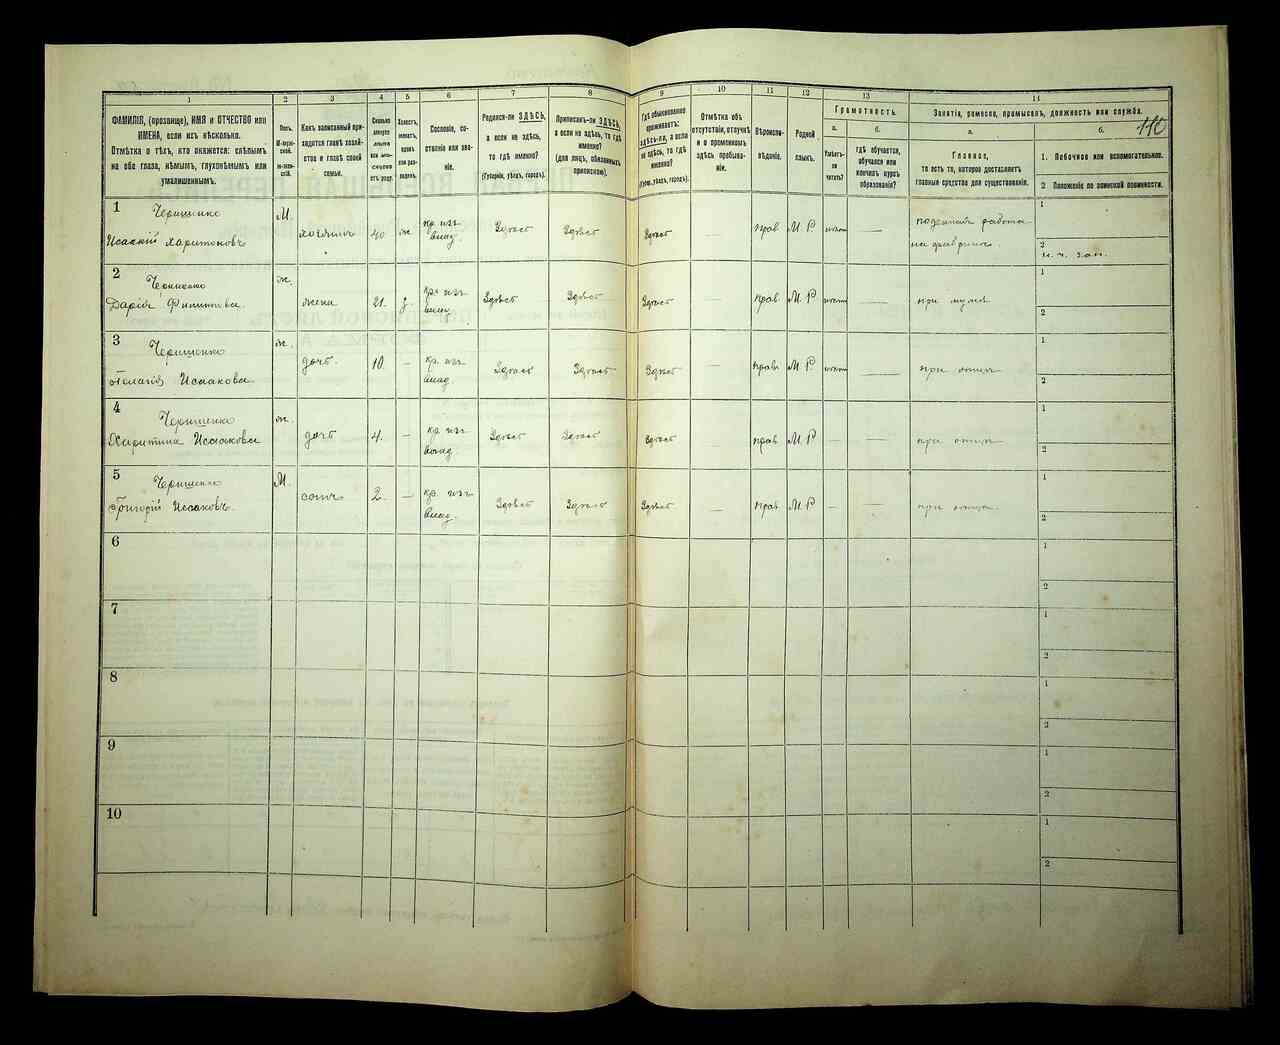 1 2 3 4 5 6 7 8 9 10 11 12 13 14
ФАМИЛІЯ, (прозвище), ИМЯ и ОТЧЕСТВО или ИМЕНА, если ихъ нѣсколько.
Отмѣтка о тѣхъ, кто окажется: слѣпымъ на оба глаза, нѣмымъ, глухонѣмымъ или умалишеннымъ.
Полъ.
М-мужской.
Ж-женскій.
Какъ записанный приходится главѣ хозяйства и главѣ своей семьи.
Сколько минуло лѣтъ или мѣсяцевъ отъ роду.
Холостъ, женатъ, вдовъ или разведенъ.
Сословіе, состояніе или званіе.
Родился-ли ЗДѢСЬ, а если не здѣсь, то гдѣ именно?
(Губернія, уѣздъ, городъ).
Приписанъ-ли ЗДѢСЬ, а если не здѣсь, то гдѣ именно?
(для лицъ, обязанныхъ припискою).
Гдѣ обыкновенно проживаетъ: здѣсь-ли, а если не здѣсь, то гдѣ именно?
(Губ., уѣздъ, городъ).
Отмѣтка объ отсутствіи, отлучкѣ и о временномъ здѣсь пребываніи.
Вѣроисповѣданіе.
Родной языкъ.
Грамотность.
а.
Умѣетъ-ли читать?
б.
гдѣ обучается, обучался или кончилъ курсъ образованія?
Занятіе, ремесло, промыселъ, должность или служба.
а.
Главное,
то есть то, которое доставляетъ главныя средства для существованія.
б.
1. Побочное или вспомогательное.
2 Положеніе по воинской повинности.
110
1 Черниенко М. кр. изъ поденная работа 1
Исаакій Харитоновъ хозяинъ 40 ж влад. Здѣсь Здѣсь Здѣсь — прав М. Р — на фабрикѣ. 2
н. ч. зап.
2 ж. кр. изъ 1
Дарія Филиппова жена 21. з. влад. Здѣсь Здѣсь Здѣсь — прав М. Р — при мужѣ 2
3 Черниенко ж. кр. изъ 1
Пелагія Исаакова дочь. 10. — влад. Здѣсь Здѣсь Здѣсь — прав М. Р — при отцѣ 2
4 Черниенко ж. кр. изъ 1
Харитина Исаакова дочь 4. — влад Здѣсь Здѣсь Здѣсь — прав М. Р — — при отцѣ 2
5 Черниенко М. кр. изъ 1
Григорій Исааковъ. сынъ 2. — влад. Здѣсь Здѣсь Здѣсь — прав М. Р — — при отцѣ 2
6 1
2
7 1
2
8 1
2
9 1
2
10 1
2